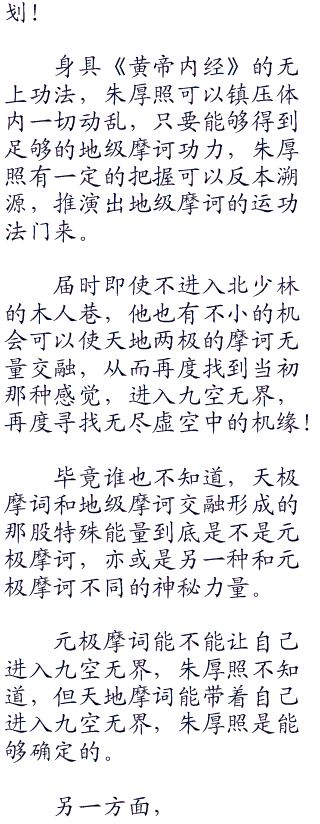 划！
身具《黄帝内经》的无
上功法，朱厚照可以镇压体
内一切动乱，只要能够得到
足够的地级摩诃功力，朱厚
照有一定的把握可以反本溯
源，推演出地级摩诃的运功
法门来。
届时即使不进入北少林
的木人巷，他也有不小的机
会可以使天地两极的摩诃无
量交融，从而再度找到当初
那种感觉，进入九空无界，
再度寻找无尽虚空中的机缘！
毕竟谁也不知道，天极
摩词和地级摩诃交融形成的
那股特殊能量到底是不是元
极摩诃，亦或是另一种和元
极摩诃不同的神秘力量。
元极摩词能不能让自己
进入九空无界，朱厚照不知
道，但天地摩词能带着自己
进入九空无界，朱厚照是能
够确定的。
另一方面，